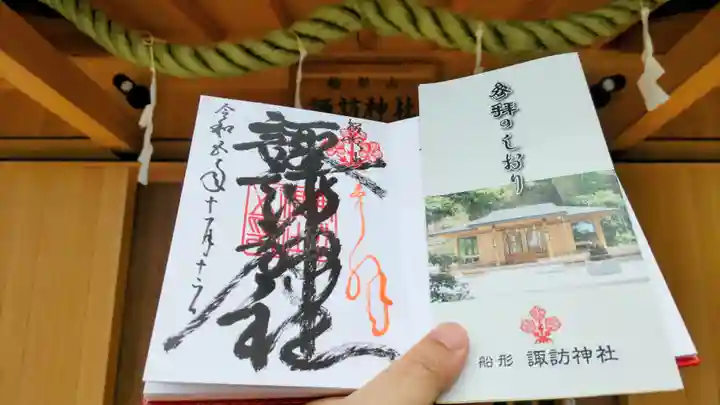 船形山
諏訪神社
令和五年十一月十二日
諏訪神社
参拝のしおり
船形 諏訪神社